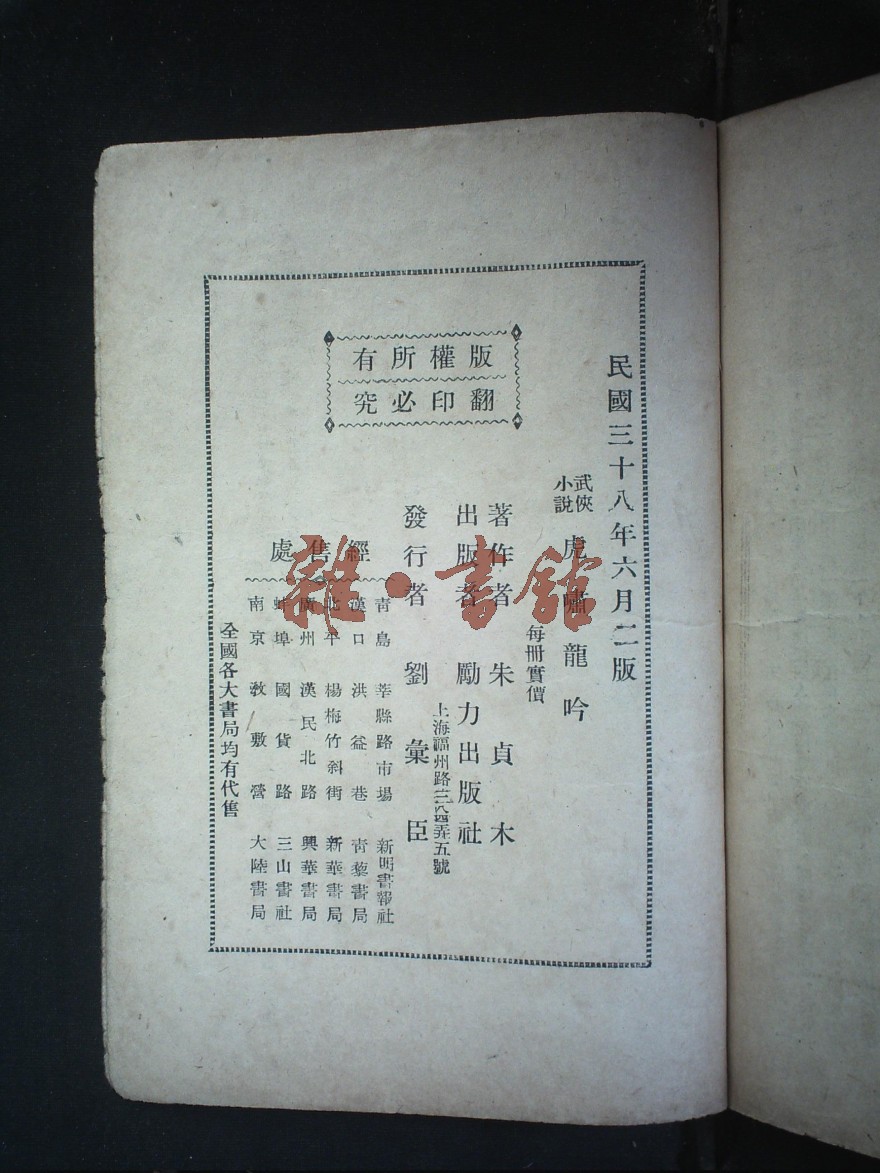 民國三十八年六月二版
武俠小說 虎嘯龍吟
每冊實價
著作者 朱貞木
出版者 勵力出版社
上海福州路三八四弄五號
發行者 劉彙臣
版權所有
翻印必究
經售處
青島 莘縣路市場 新明書報社
漢口 洪益巷 青藜書局
北平 楊梅竹斜街 新華書局
廣州 漢民北路 興華書局
蚌埠 國貨路 三山書社
南京 敎敷營 大陸書局
全國各大書局均有代售
雜·書館